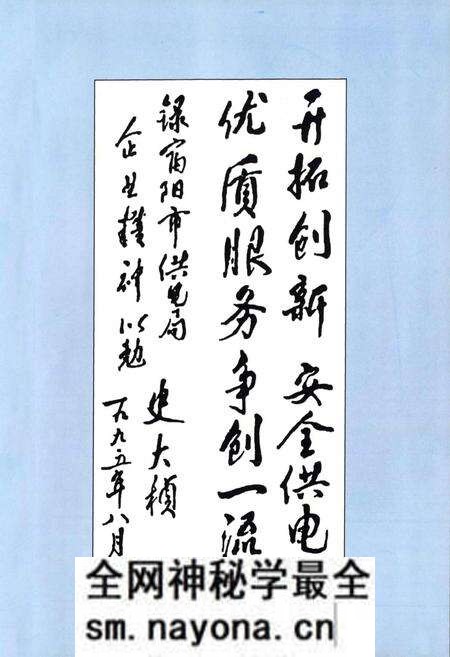 开拓创新 安全供电
优质服务争创一流
录富阳市供电局
企业精神以勉
史大桢
一九九五年八月
全网神秘学最全
sm.nayona.cn